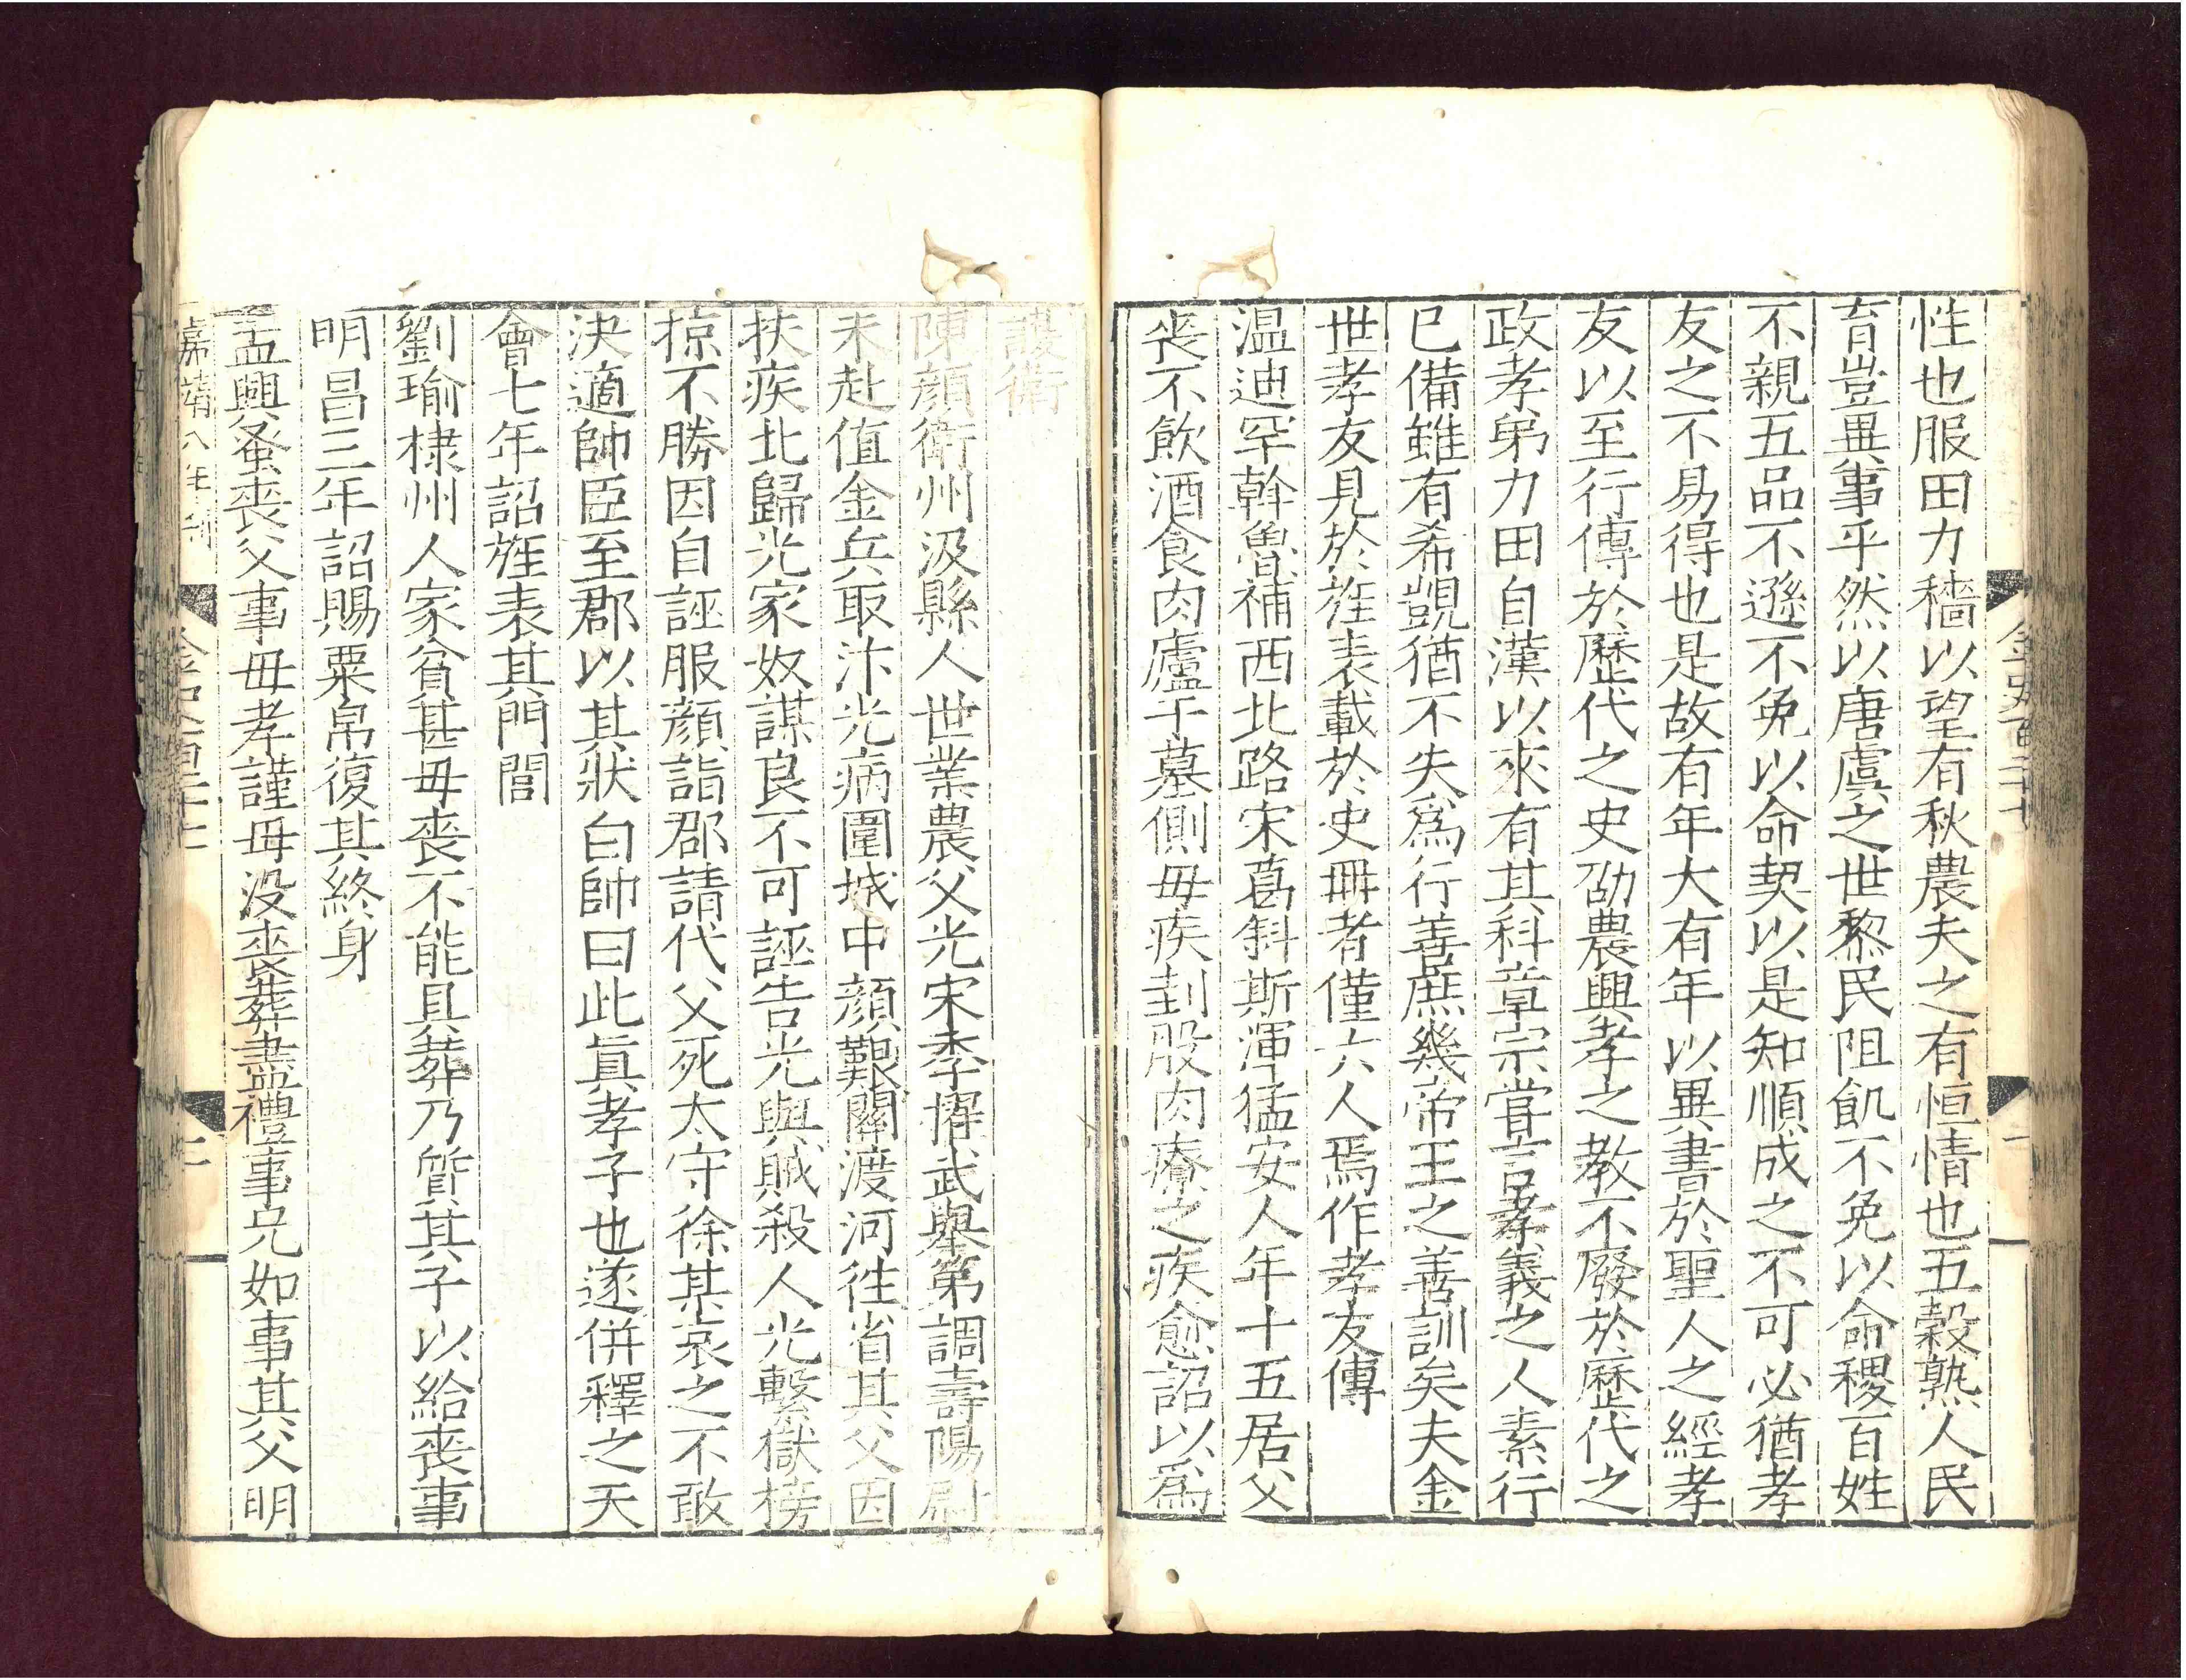 性也服田力穡以望有秋農夫之有恒情也五穀熟人民
育豈異事乎然以唐虞之世黎民阻飢不免以命稷百姓
不親五品不遜不免以命契以是知順成之不可必猶孝
友之不易得也是故有年大有年以異書於聖人之經孝
友以至行傳於歷代之史劭農興孝之教不廢於歷代之
政孝弟力田自漢以來有其科章宗嘗言孝義之人素行
已備雖有希覬猶不失爲行善庶幾帝王之善訓矣夫金
世孝友見於旌表載於史冊者僅六人焉作孝友傳
温迪罕斡魯補西北路宋葛斜斯渾猛安人年十五居父
喪不飲酒食肉廬于墓側母疾刲股肉療之疾愈詔以爲
護衛
陳顔衛州汲縣人世業農父光宋季擢武舉第調壽陽尉
未赴值金兵取汴光病圍城中顔艱關渡河往省其父因
扶疾北歸光家奴謀良不可誣告光與賊殺人光繫獄榜
掠不勝因自誣服顔詣郡請代父死太守徐某哀之不敢
決適帥臣至郡以其狀白帥曰此眞孝子也遂併釋之天
會七年詔旌表其門閭
劉瑜棣州人家貧甚母喪不能具葬乃質其子以給喪事
明昌三年詔賜粟帛復其終身
孟興蚤喪父事母孝謹母没喪葬盡禮事兄如事其父明
嘉靖八年刊